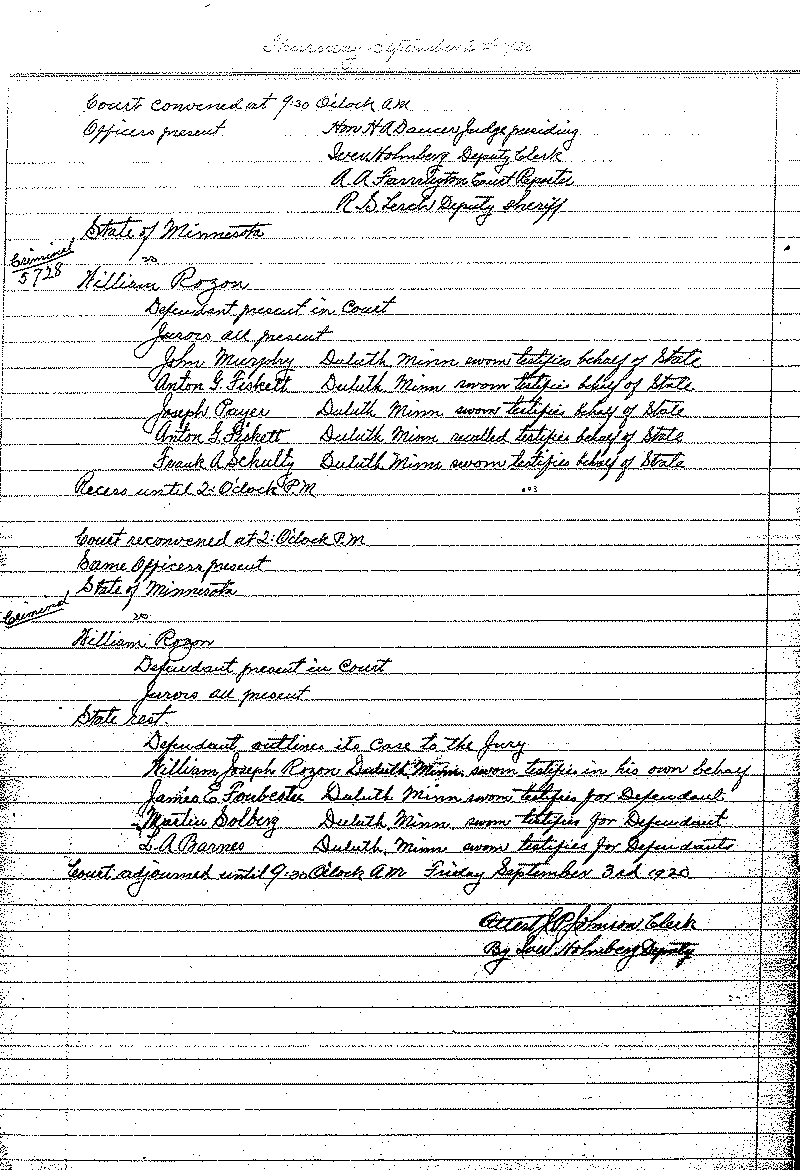 Thursday September 2nd 1920
Court convened at 9:30 Oclock A.M.
Officers present Hon H A Dancer Judge presiding
Iver Holmberg Deputy Clerk
A A Farrington Court Reporter
R S Lerch Deputy Sheriff
State of Minnesota
Criminal 5728
vs
William Rozon
Defendant present in Court
Jurors all present
John Murphy Duluth Minn sworn testifies behalf of State
Anton G. Fiskett Duluth Minn sworn testifies behalf of State
Joseph Payer Duluth Minn sworn testifies behalf of State
Anton G. Fiskett Duluth Minn recalled testifies behalf of State
Frank A Schultz Duluth Minn sworn testifies behalf of State
Recess until 2: Oclock P.M
Court reconvened at 2: Oclock P.M
Same Officers present
State of Minnesota
Criminal
vs
William Rozon
Defendant present in Court
Jurors all present
State rest
Defendant outlines its case to the Jury
William Joseph Rozon Duluth Minn sworn testifies in his own behalf
James E. Duluth Minn sworn testifies for Defendant
Martin Solberg Duluth Minn. sworn testifies for Defendant
L A Barnes Duluth, Minn sworn testifies for Defendants
Court adjourned until 9:30 Oclock A.M Friday September 3rd 1920
Attest J P Johnson Clerk
By Iver Holmberg Deputy